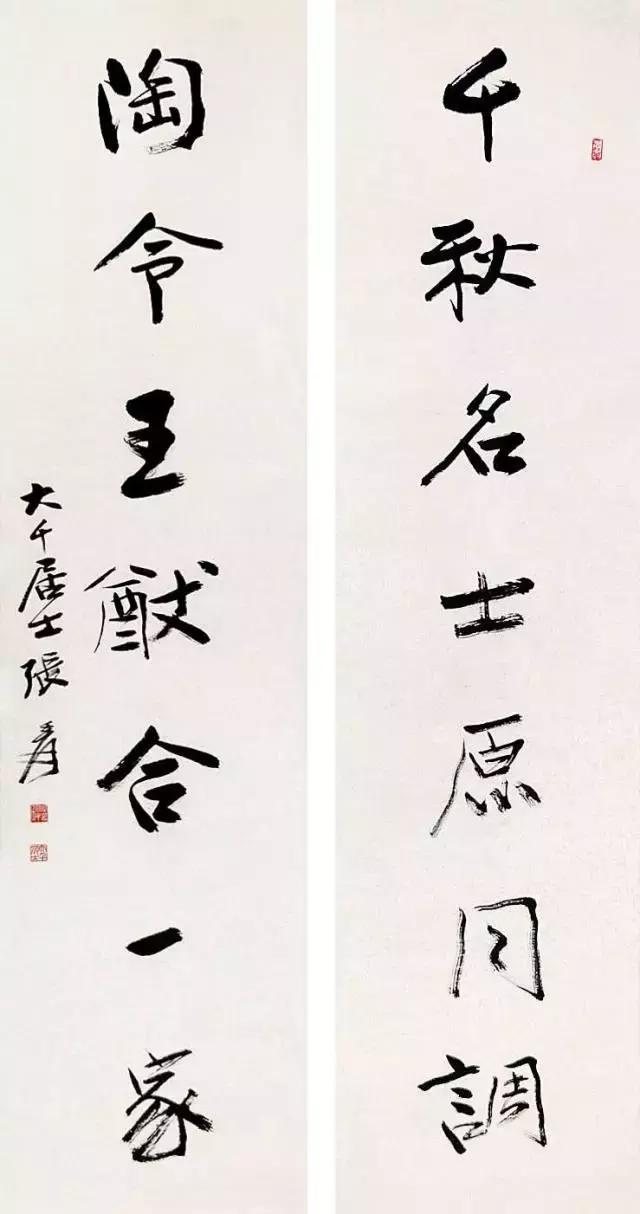 千秋名士原同調
陶令王猷合一家
大千居士張爰